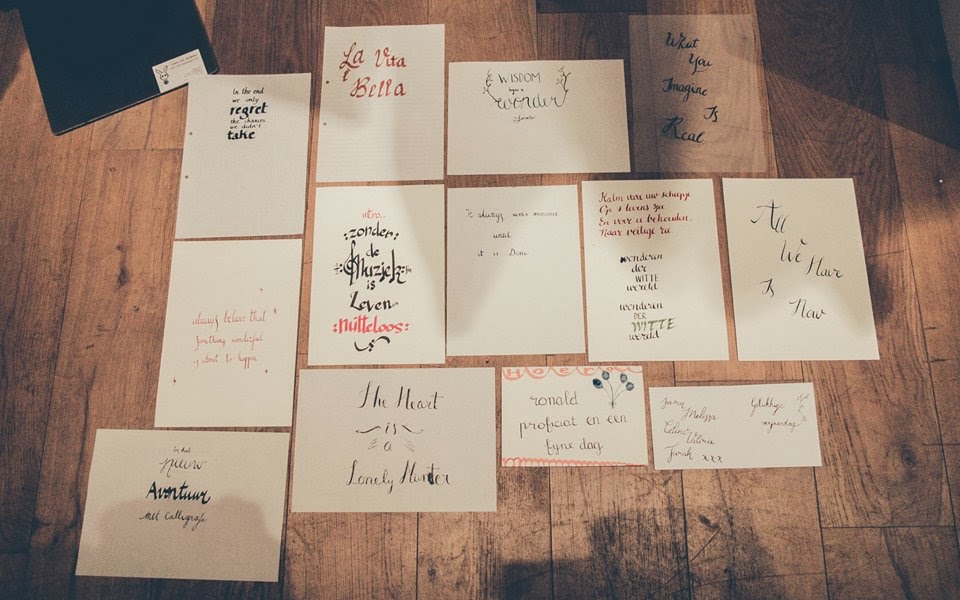 In the end
we only
regret
the chances
we didn't
take
La Vita
È
Bella
WISDOM
begins in
wonder
What
You
Imagine
Is
Real
always believe that
something wonderful
is about to happen
intro...
zonder
de
Muziek
is
Leven
nutteloos
It always seems
until
it is Done
Kalm
Op 's levens zee
En voor u behouden.
Haar veilige
wonderen
der
WITTE
wereld
wonderen
DER
WITTE
wereld
All
We Have
Is
Now
nieuw
Avontuur
met Calligrafie
The Heart
is
a
Lonely Hunter
Hoera
ronald
proficiat en een
fyne dag
Melissa
Celine Valerie
Sarah xxx
Gelukkige
verjaardag